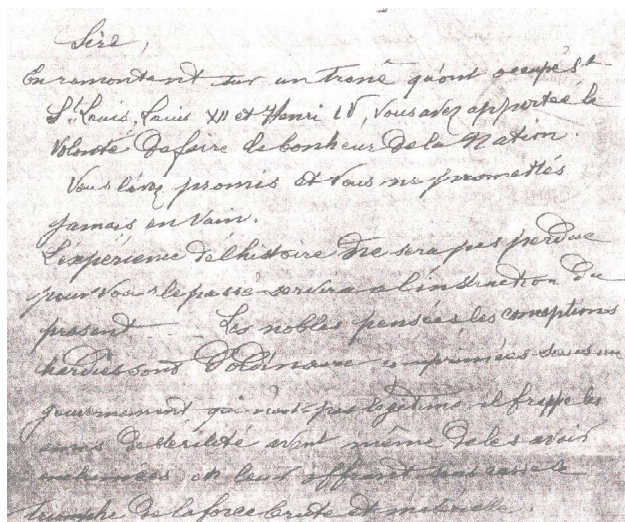 Sire,
En remontent sur un trône qu'ont occupés St
St Louis, Louis XII et Henri IV, vous avez apportée la
volonté de faire le bonheur de la Nation.
Vous l'avez promis et vous ne promettés
jamais en vain.
L'expérience de l'histoire ne sera pas perdue
pour vous le passé servira a l'instruction du
present Les nobles pensées les conceptions
hardies sont d'ordinaire comprimées sous un
gouvernement qui n'est pas légitime il frappe les
ames de stérilité avent même de les avoir
en leur offrant sans cesse le
triomphe de la force brute et matérielle.